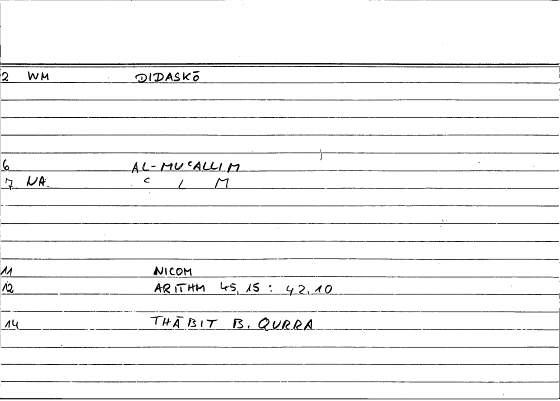 2 WM DIDASKŌ
6 AL-MUʿALLIM
7 NA ʿ L M
11 NICOM
12 ARITHM 45,15 : 42,10
14 THĀBIT B. QURRA